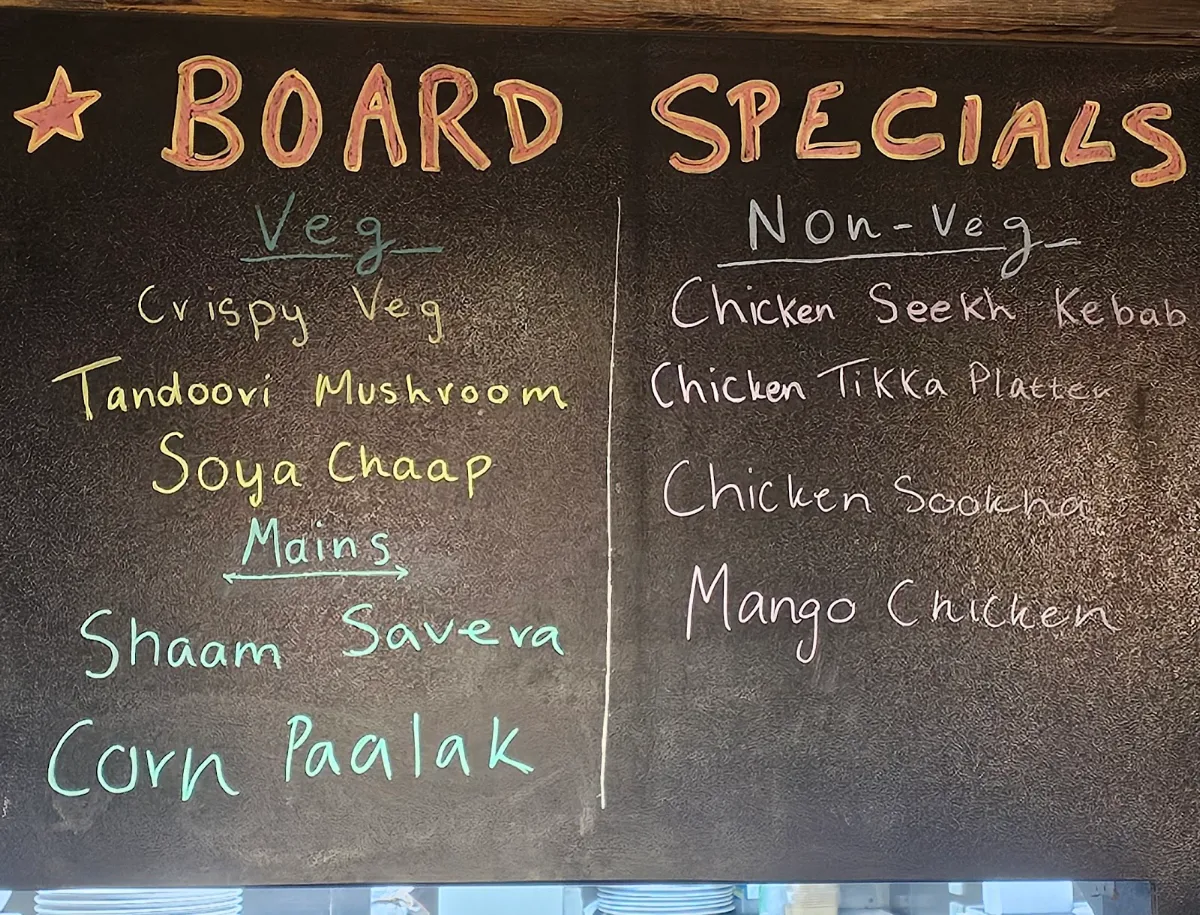 BOARD SPECIALS
Veg
Crispy Veg
Tandoori Mushroom
Soya Chaap
Mains
Shaam Savera
Corn Paalak
Non-Veg
Chicken Seekh Kebab
Chicken Tikka Platter
Chicken Sookha
Mango Chicken